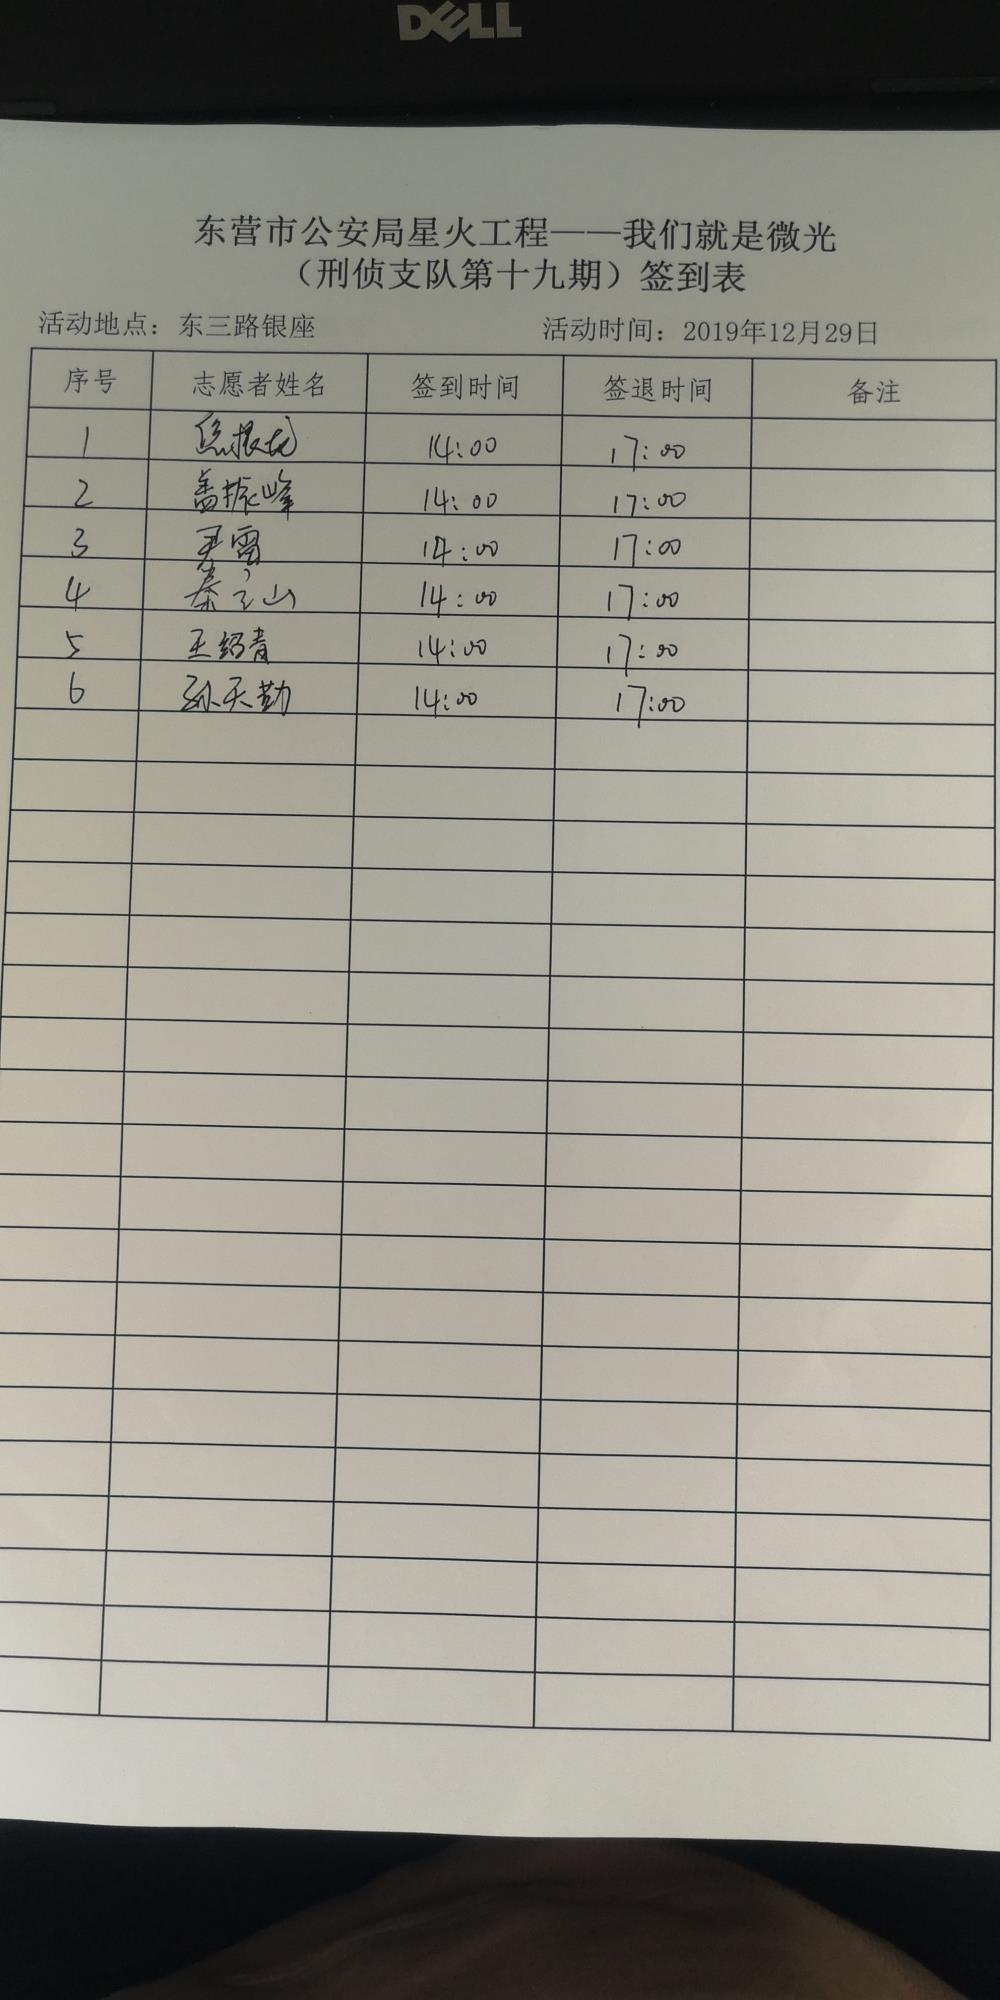 DELL
东营市公安局星火工程——我们就是微光
（刑侦支队第十九期）签到表
活动地点：东三路银座 活动时间：2019年12月29日
序号 志愿者姓名 签到时间 签退时间 备注
1 14:00 17:00
2 盖振峰 14:00 17:00
3 尹雷 14:00 17:00
4 秦 山 14:00 17:00
5 王绍青 14:00 17:00
6 孙天勤 14:00 17:00